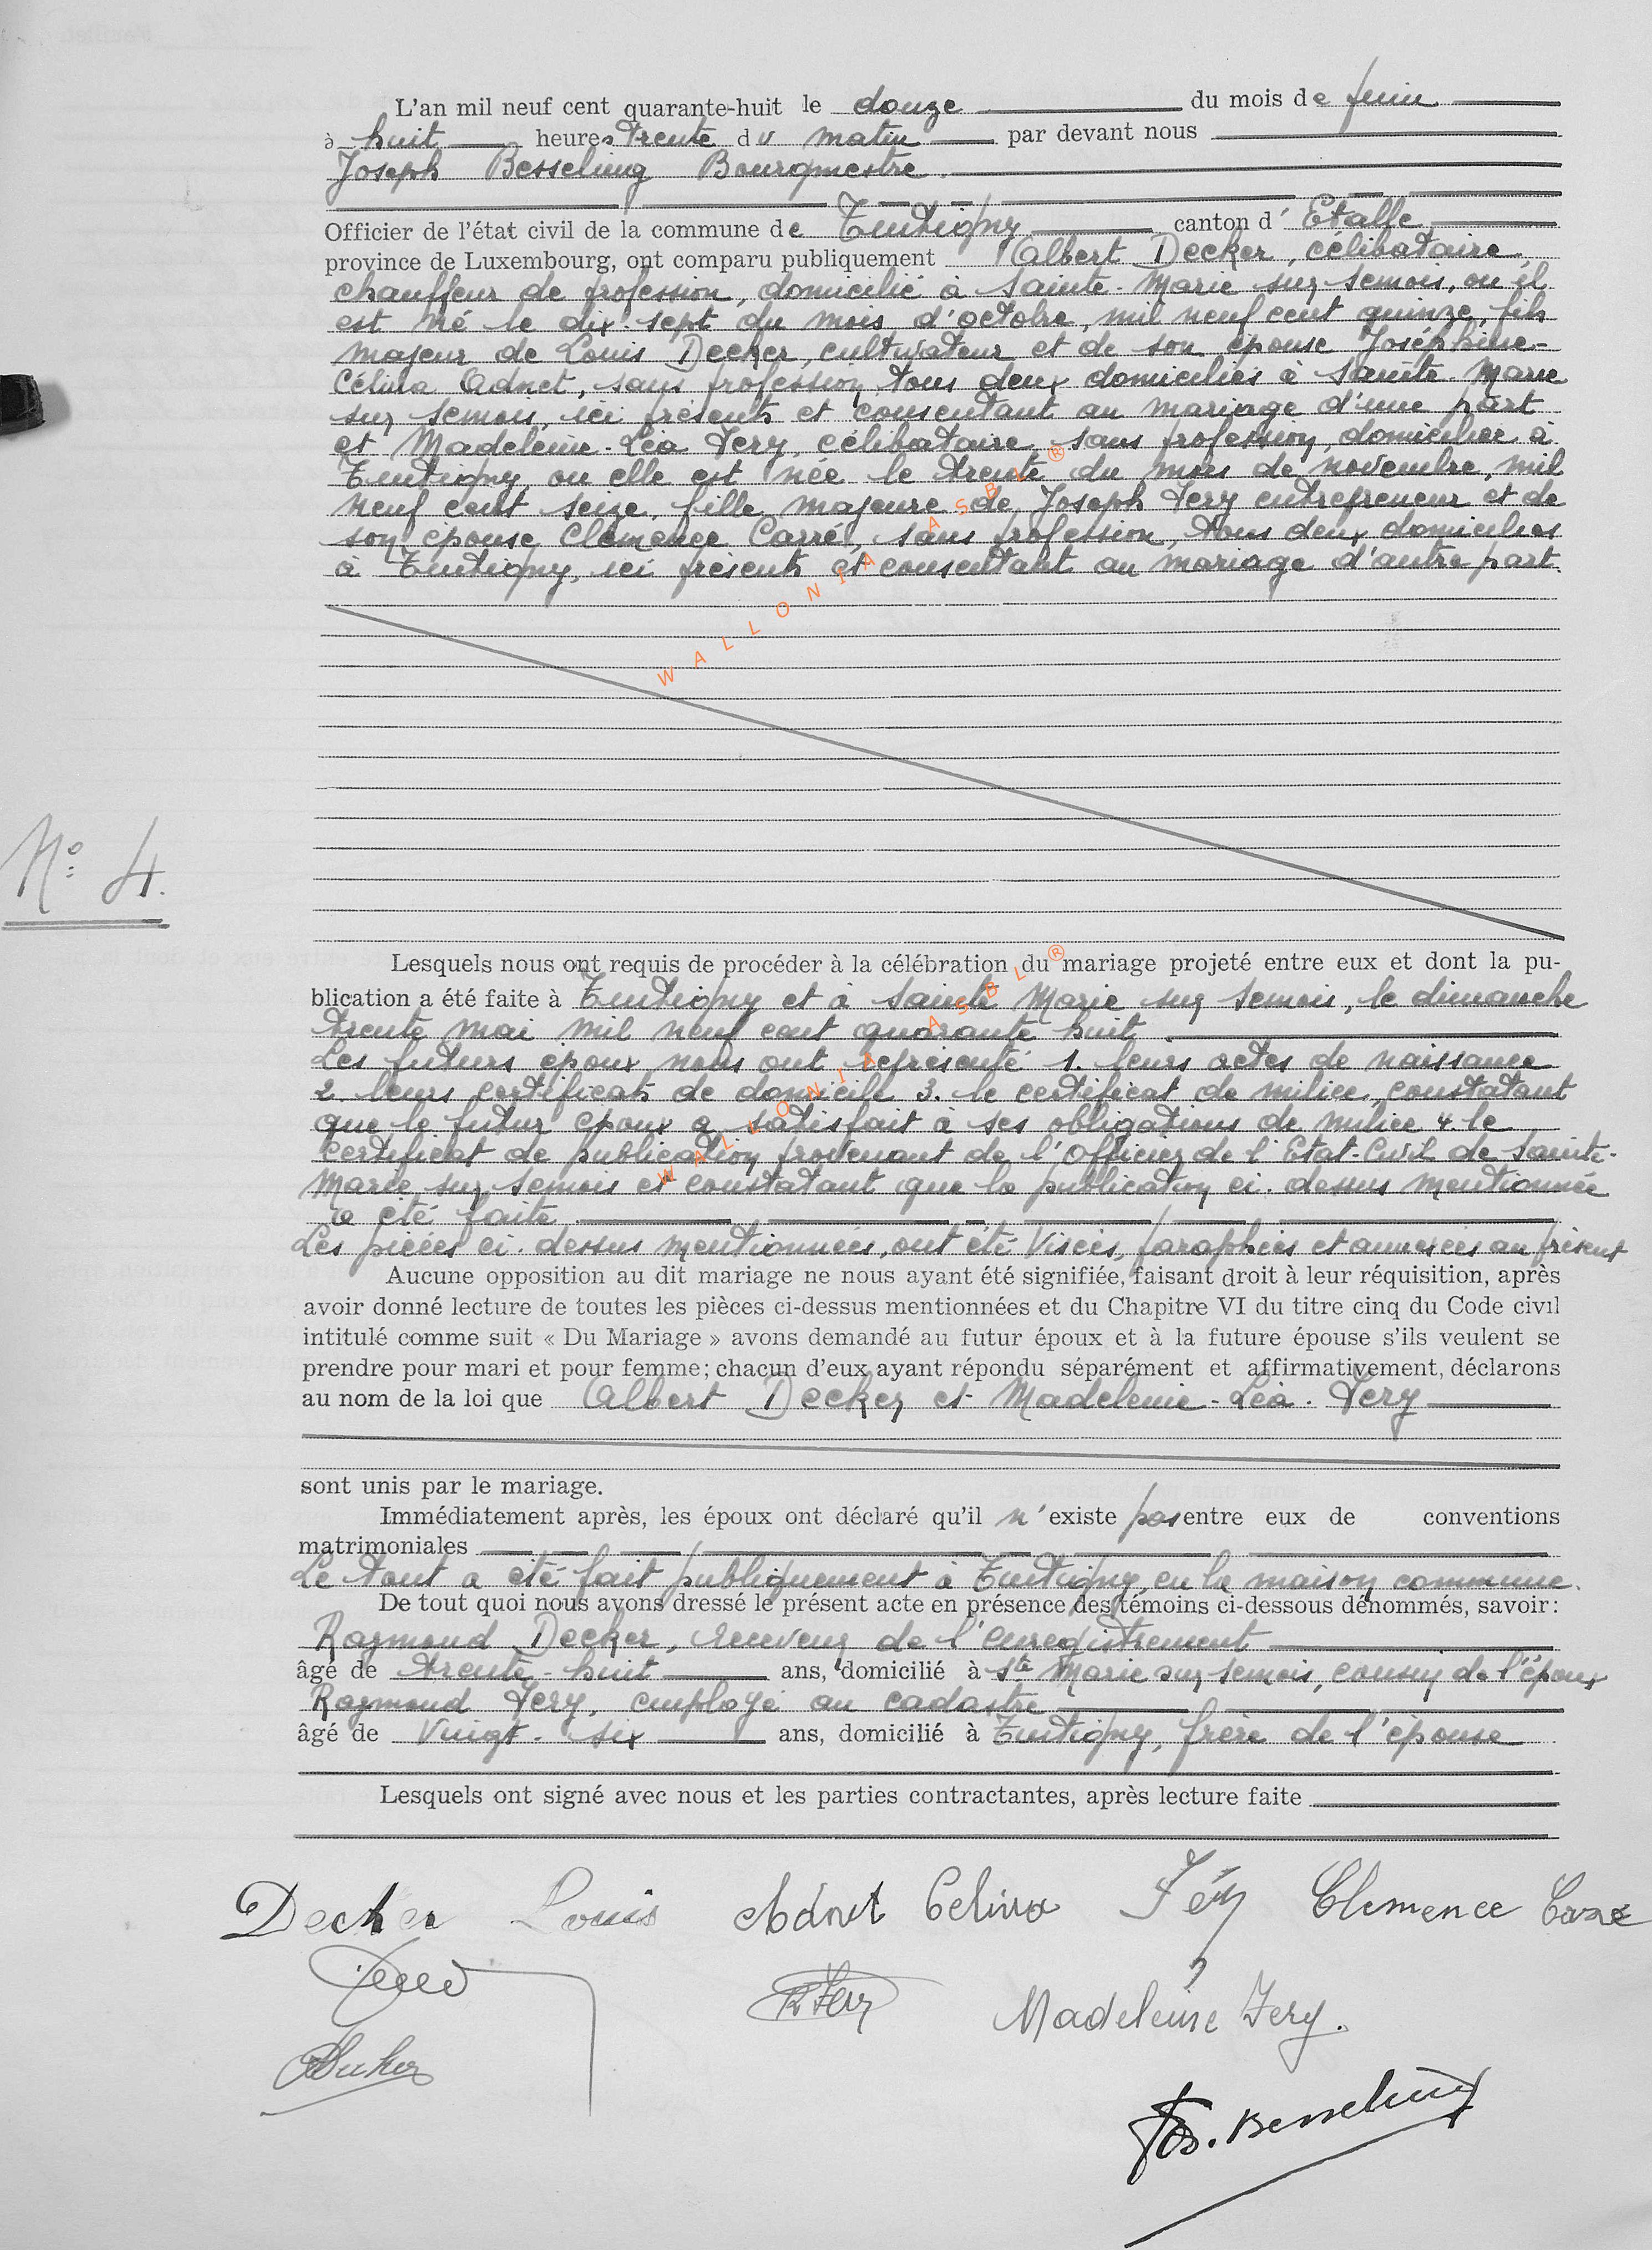 L'an mil neuf cent quarante-huit le douze du mois de juin
à huit heures trente du matin par devant nous
Joseph Besseling Bourgmestre.
Officier de l'état civil de la commune de Tintigny canton d'Etalle
province de Luxembourg, ont comparu publiquement Albert Decker, célibataire,
chauffeur de profession, domicilié à Sainte-Marie sur Semois, où il
est né le dix-sept du mois d'octobre, mil neuf cent quinze, fils
majeur de Louis Decker, cultivateur et de son épouse Joséphine-
Célina Adnet, sans profession, tous deux domiciliés à Sainte-Marie
sur Semois, ici présents et consentant au mariage d'une part
et Madeleine-Léa Féry, célibataire, sans profession, domiciliée à
Tintigny, où elle est née le trente du mois de novembre, mil
neuf cent seize, fille majeure de Joseph Féry entrepreneur et de
son épouse Clémence Carré, sans profession, tous deux domiciliés
à Tintigny, ici présents et consentant au mariage d'autre part.
WALLONIA ASBL ®
N° 4.
Lesquels nous ont requis de procéder à la célébration du mariage projeté entre eux et dont la pu-
blication a été faite à Tintigny et à Sainte Marie sur Semois, le dimanche
trente mai mil neuf cent quarante huit
Les futurs époux nous ont représenté 1. leurs actes de naissance
2. leurs certificats de domicile 3. le certificat de milice, constatant
que le futur époux a satisfait à ses obligations de milice 4. le
certificat de publication provenant de l'Officier de l'Etat-Civil de Sainte-
Marie sur Semois et constatant que la publication ci-dessus mentionnée
a été faite
Les pièces ci-dessus mentionnées, ont été visées, paraphées et annexées au présent
WALLONIA ASBL ®
Aucune opposition au dit mariage ne nous ayant été signifiée, faisant droit à leur réquisition, après
avoir donné lecture de toutes les pièces ci-dessus mentionnées et du Chapitre VI du titre cinq du Code civil
intitulé comme suit « Du Mariage » avons demandé au futur époux et à la future épouse s'ils veulent se
prendre pour mari et pour femme; chacun d'eux ayant répondu séparément et affirmativement, déclarons
au nom de la loi que Albert Decker et Madeleine-Léa. Féry
sont unis par le mariage.
Immédiatement après, les époux ont déclaré qu'il n'existe pas entre eux de conventions
matrimoniales
Le tout a été fait publiquement à Tintigny, en la maison commune.
De tout quoi nous avons dressé le présent acte en présence des témoins ci-dessous dénommés, savoir:
Raymond Decker, receveur de l'enregistrement
âgé de trente-huit ans, domicilié à Ste Marie sur Semois, cousin de l'époux
Raymond Féry, employé au cadastre
âgé de vingt-six ans, domicilié à Tintigny, frère de l'épouse
Lesquels ont signé avec nous et les parties contractantes, après lecture faite
Decker Louis Adnet Celina Féry Clemence Carré
R Fery Madeleine Fery.
Jos. Besseling